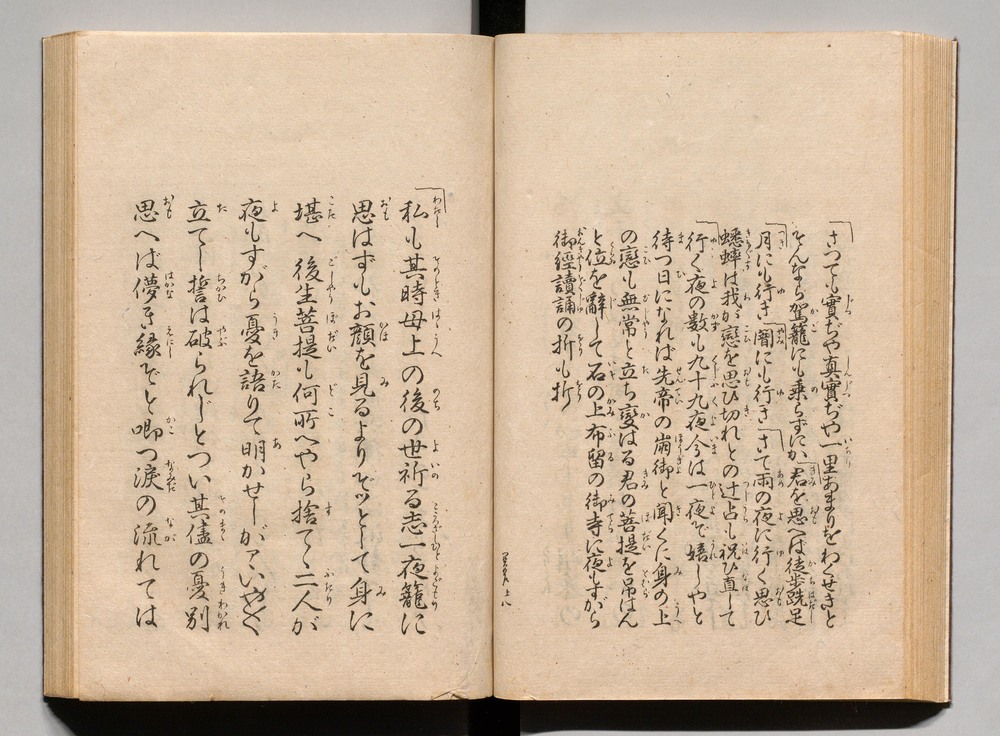 さつても實ぢや真實ぢや一里あまりをわくせきと
そんなら駕籠にも乗らずにか「君を思へば徒歩跣足
「月にも行き「闇にも行き「さて雨の夜に行く思ひ
蟋蟀は我が戀を思ひ切れとの辻占も祝ひ直して
「行く夜の数も九十九夜今は一夜で嬉しやと
待つ日になれば先帝の崩御と聞くに身の上
の戀も無常と立ち變はる君の菩提を吊はん
と位を辭して石の上布留の御寺に夜もすがら
御經讀誦の折も折
「私も其時母上の後の世祈る志一夜籠に
思はずもお顔を見るよりぞッとして身に
堪へ後生菩提も何所へやら捨てゝ二人が
夜もすがら憂を語りて明かせしがアヽいや〳〵
立てし誓は破られじとつい其儘の憂別
思へば儚き縁ぞと喞つ淚の流れては